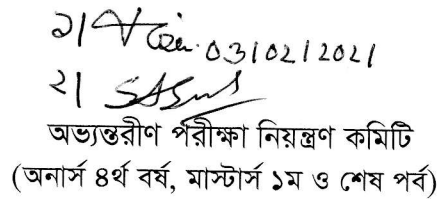 ১। 03/02/2021
২।
অভ্যন্তরীণ পরীক্ষা নিয়ন্ত্রণ কমিটি
(অনার্স ৪র্থ বর্ষ, মাস্টার্স ১ম ও শেষ পর্ব)